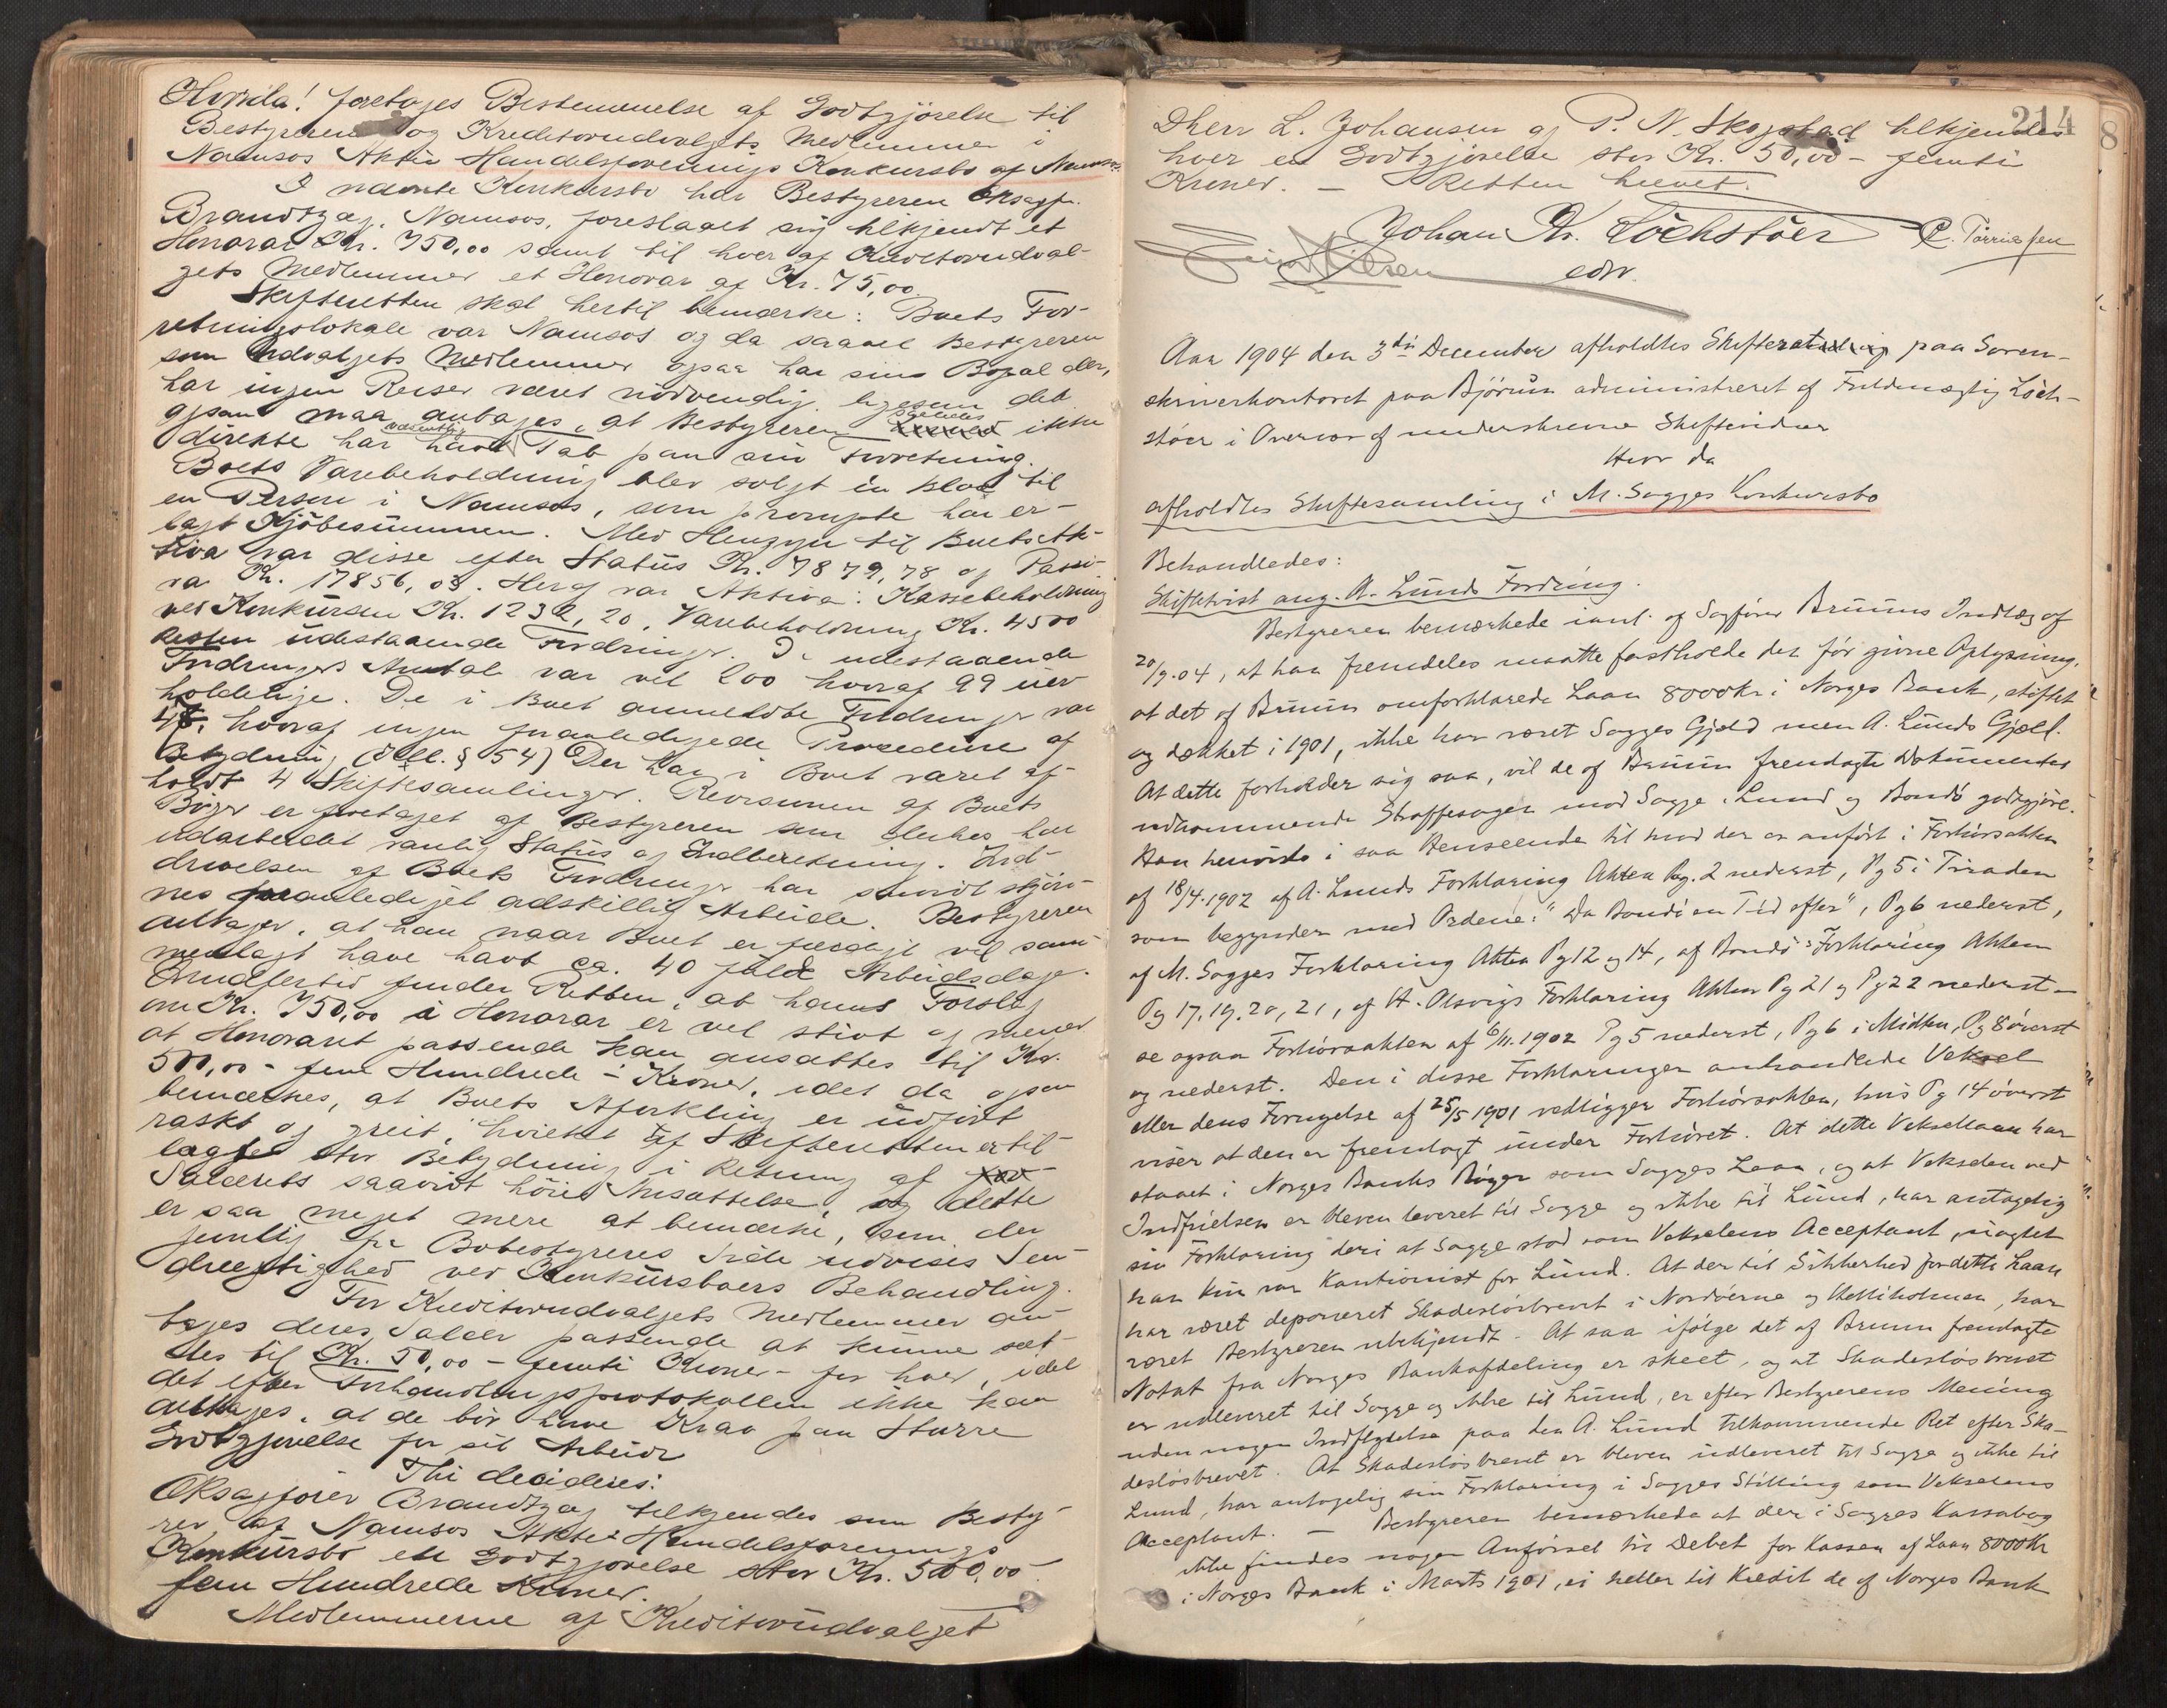 Hvorda! foretoges Bestemmelse af Godtgjörelse til
Bestyreren og Kreditorudvalgets Medlemmer i
Namsos Aktie Handelsforenings Konkursbo af Namsos.
I nævnte Konkursbo har Bestyreren Oksagfr.
Brandtzæg, Namsos, foreslaaet sig tilkjendt et
Honorar Kr. 750,00 samt til hver af Kreditorudval-
gets Medlemmer et Honorar af Kr. 75,00.
Skifteretten skal hertil bemærke: Boets For-
retningslokale var Namsos og da saavel Bestyreren
som Udvalgets Medlemmer ogsaa har sin Bopæl der,
har ingen Reiser været nödvendig, ligesom det
ogsaa maa antages, at Bestyreren saaledes ikke
direkte har havt væsentlig Tab paa sin Forretning.
Boets Varebeholdning blev solgt en bloc til
en Person i Namsos, som prompte har er-
lagt Kjöbesummen. Med Hensyn til Boets Ak-
tiva var disse efter Status Kr. 7879,78 og Passi-
va Kr. 17856,03. Heraf var Aktiva: Kassebeholdning
ved Konkursen Kr. 1232,20, Varebeholdning Kr. 4500
Resten udestaaende Fordringer. De udestaaende
Fordringers Antal var vel 200 hvoraf 99 uer-
holdelige. De i Boet anmeldte Fordringer var
47, hvoraf ingen foranledigede Procedure af
Betydning (§ 54) Der har i Boet været af-
holdt 4 Skiftesamlinger. Revisionen af Boets
Böger er foretaget af Bestyreren som derhos har
udarbeidet vanlig Status og Indberetning. Ind-
drivelsen af Boets Fordringer har saavidt skjön-
nes foranlediget adskillig Arbeide. Bestyreren
antager, at han naar Boet er færdigt vil sam-
menlagt have havt ca. 40 fulde Arbeidsdage.
Imidlertid finder Retten, at hans Forslag
om Kr. 750,00 i Honorar er vel stivt og mener
at Honoraret passende kan ansættes til Kr.
500,00 - fem Hundrede - Kroner, idet da ogsaa
bemærkes, at Boets Afvikling er udfört
raskt og greit, hvilket af Skifteretten er til-
lagt stor Betydning i Retning af
Salærets saavidt höie Ansættelse, og dette
er saa meget mere at bemærke, som der
jevnlig fra Bobestyreres Side udvises Sen-
drægtighed ved Konkursboers Behandling.
For Kreditorudvalgets Medlemmer an-
tages deres Salær passende at kunne sæt-
tes til Kr. 50,00 - femti Kroner - for hver, idet
det efter Forhandlingsprotokollen ikke kan
antages, at de bör have Krav paa Större
Godtgjörelse for sit Arbeide
Thi decideres:
OKsagförer Brandtzæg tilkjendes som Besty-
rer af Namsos Aktie Handelsforenings
Konkursbo en Godtgjörelse stor Kr. 500,00
fem Hundrede Kroner.
Medlemmerne af Kreditorudvalget
214
Dherr L. Johansen og P. N. Skogstad tilkjendes
hver en Godtgjörelse stor Kr. 50,00 - femti
Kroner. - Retten hævet.
Johan Kr. Löchstöer C. Torrissen
Nilsen edv.
Aar 1904 den 3die December afholdtes Skifteret paa Soren-
skriverkontoret paa Björum administreret af Fuldmægtig Löch-
stöer i Overvær af underskrevne Skiftevidner
Hvor da
afholdtes Skiftesamling i M. Sagges Konkursbo
Behandledes:
Skiftetvist ang. A. Lunds Fordring.
Bestyreren bemærkede i anl. af Sagförer Bruuns Indlæg af
20/9.04, at han fremdeles maatte fastholde den för givne Oplysning,
at det af Bruun omforklarede Laan 8000kr i Norges Bank, stiftet
og dækket i 1901, ikke har været Sagges Gjæld men A. Lunds Gjæld.
At dette forholder sig saa, vil de af Bruun fremlagte Dokumenter
vedkommende Straffesagen mod Sagge, Lund og Bondö godtgjöre.
Han henviste i saa Henseende til hvad der er anfört i Forhörsakten
af 18/4.1902 af A. Lunds Forklaring Akten Pg. 2 nederst, Pg 5 i Tiraden
som begynder med Ordene: "Da Bondö en Tid efter", Pg 6 nederst,
af M. Sagges Forklaring Akten Pg 12 og 14, af Bondö's Forklaring Akten
Pg 17, 19, 20, 21, af H. Olsvigs Forklaring Akten Pg 21 og Pg 22 nederst -
se ogsaa Forhörsakten af 6/11.1902 Pg 5 nederst, Pg 6 i Midten, Pg 8 överst
og nederst. Den i disse Forklaringer omhandlede Veksel
eller dens Fornyelse af 25/5 1901 vedligger Forhörsakten, hvis Pg 14 överst
viser at den er fremlagt under Forhöret. At dette Veksellaan har
staaet i Norges Banks Böger som Sagges Laan, og at Vekselen ved
Indfrielsen er bleven leveret til Sagge og ikke til Lund, har antagelig
sin Forklaring deri at Sagge stod som Vekselens Acceptant, uagtet
han kun var Kautionist for Lund. At der til Sikkerhed for dette Laan
har været deponeret Skadeslösbrevet i Nordværne og Kletholmen, har
været Bestyreren ubekjendt. At saa ifölge det af Bruun fremlagte
Notat fra Norges Bankafdeling er skeet, og at Skadeslösbrevet
er udleveret til Sagge og ikke til Lund, er efter Bestyrerens Mening
uden nogen Indflydelse paa den A. Lund tilkommende Ret efter Ska-
deslösbrevet. At Skadeslösbrevet er bleven udleveret til Sagge og ikke til
Lund, har antagelig sin Forklaring i Sagges Stilling som Vekselens
Acceptant. - Bestyreren bemærkede at der i Sagges Kassabog
ikke findes nogen Anförsel til Debet for Kassen af Laan 8000Kr
i Norges Bank i Marts 1901, ei heller til Kredit de af Norges Bank